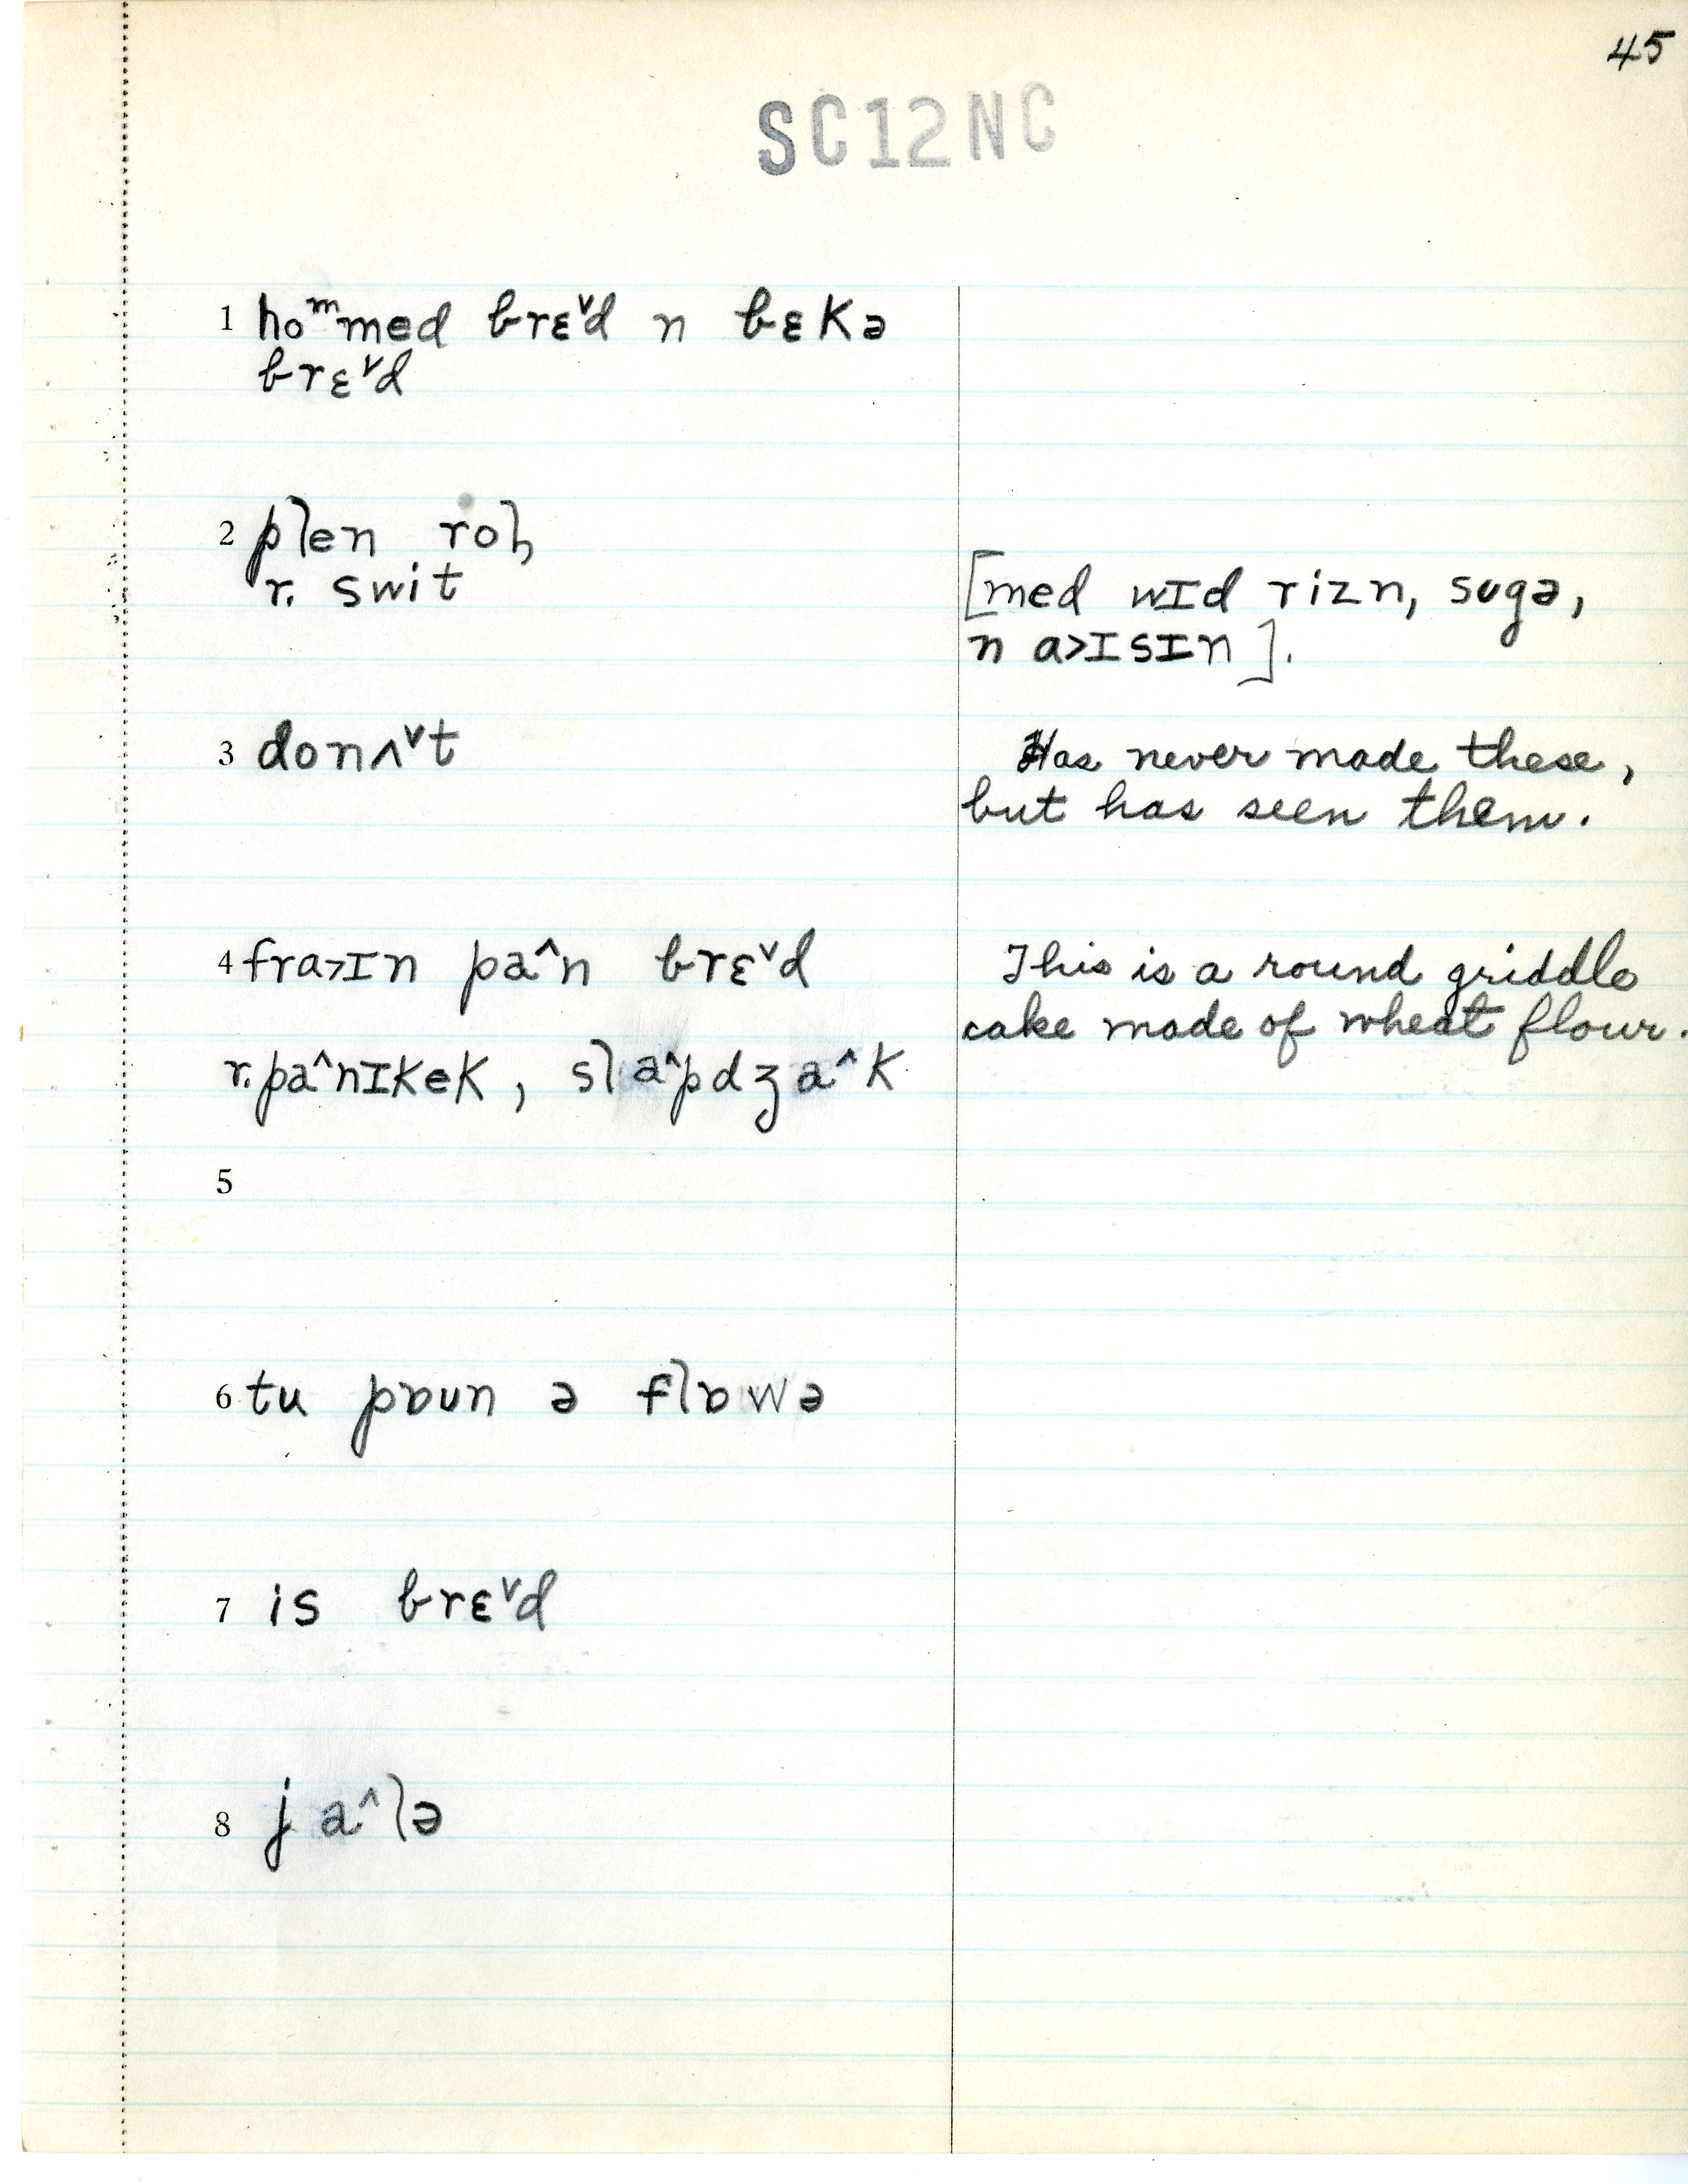 45
SC12NC
1 hoᵐmed brɛ˅d n bɛkə
brɛ˅d
2 plen rol̥
r. swit
[med wɪd rizn, sʊgə,
n a>ɪsɪn].
3 donʌ˅t
Has never made these,
but has seen them.
4 fra>ɪn pa^n brɛ˅d
This is a round griddle
cake made of wheat flour.
r. pa^nɪkek, sla^pdʒa^k
5
6 tu pɒʊn ə flɒwə
7 is brɛ˅d
8 ja^lə